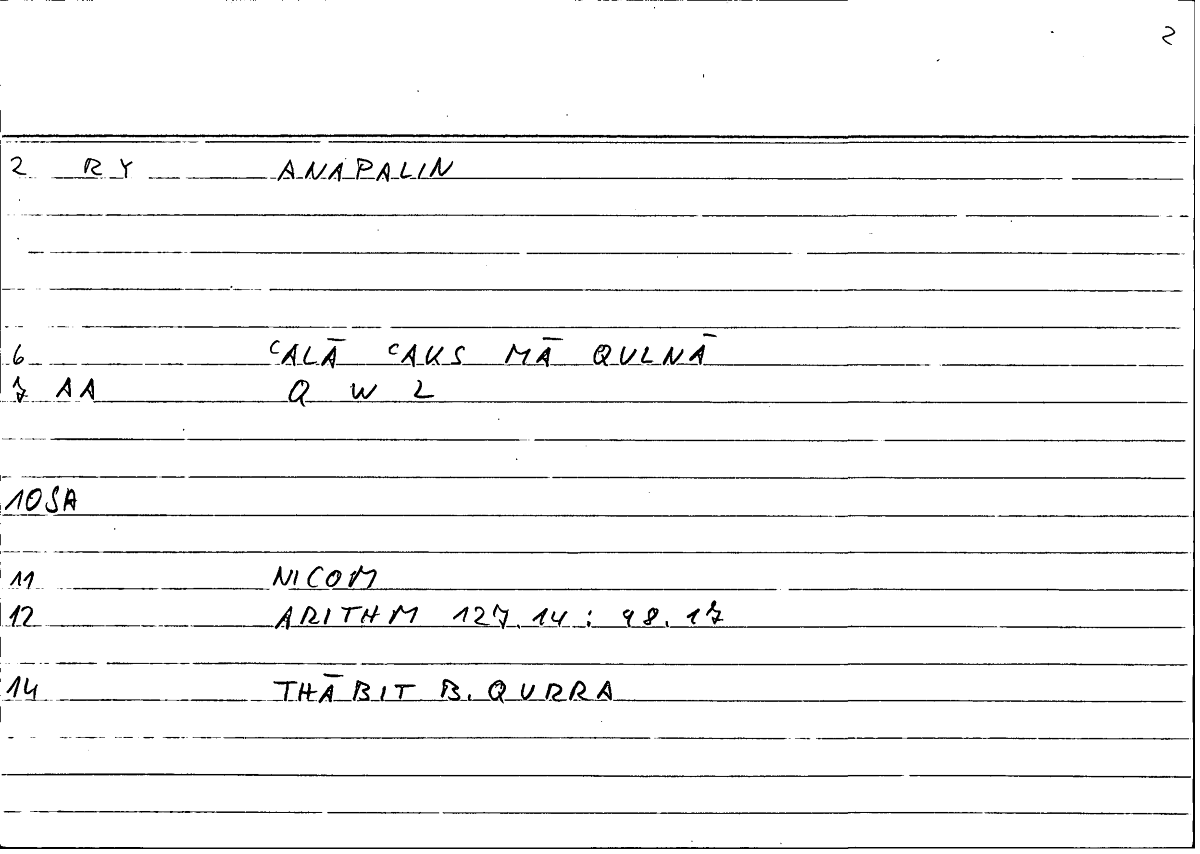 2
2 RY ANAPALIN
6 ʿALĀ ʿAKS MĀ QULNĀ
7 AA Q W L
10 SA
11 NICOM
12 ARITHM 127.14 : 98.17
14 THĀBIT B. QURRA